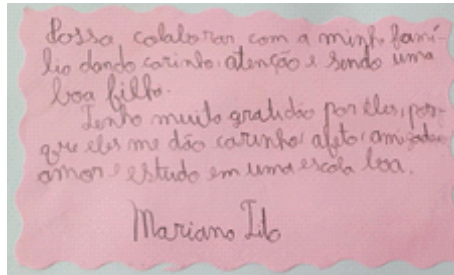 Possa colaborar com a minha famí-
lia dando carinho, atenção e sendo uma
boa filha.
Tenho muita gratidão por eles, por-
que eles me dão carinho, afeto, amizade,
amor e estudo em uma escola boa.
Mariana